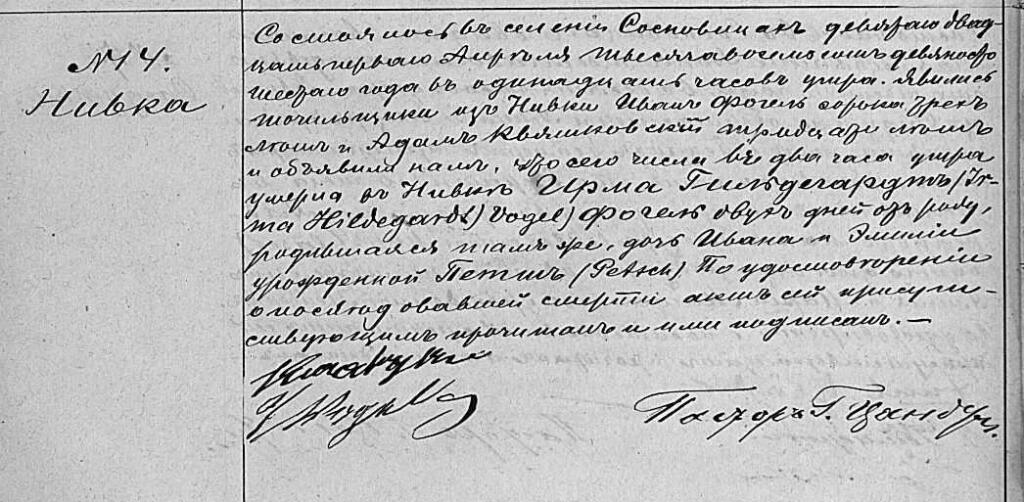 N 14.
Нивка
Состоялось въ селеніи Сосновицахъ девятаго двад-
цать перваго Апрѣля тысяча восемьсотъ девяносто
шестаго года въ одинадцать часовъ утра. Явились
точильщики изъ Нивки Иванъ Фогель сорока трехъ
лѣтъ и Адамъ Квятковскій тридцати лѣтъ
и объявили намъ, что сего числа въ два часа утра
умерла въ Нивкѣ Ирма Гильдегардтъ (Ir-
ma Hildegardt) Vogel) Фогель двухъ дней отъ роду,
родившаяся тамъ же, дочь Ивана и Эмиліи
урожденной Петшъ (Petsch) По удостовѣреніи
о послѣдовавшей смерти актъ сей присут-
ствующимъ прочитанъ и ими подписанъ. —
Пасторъ Г. Цандеръ.